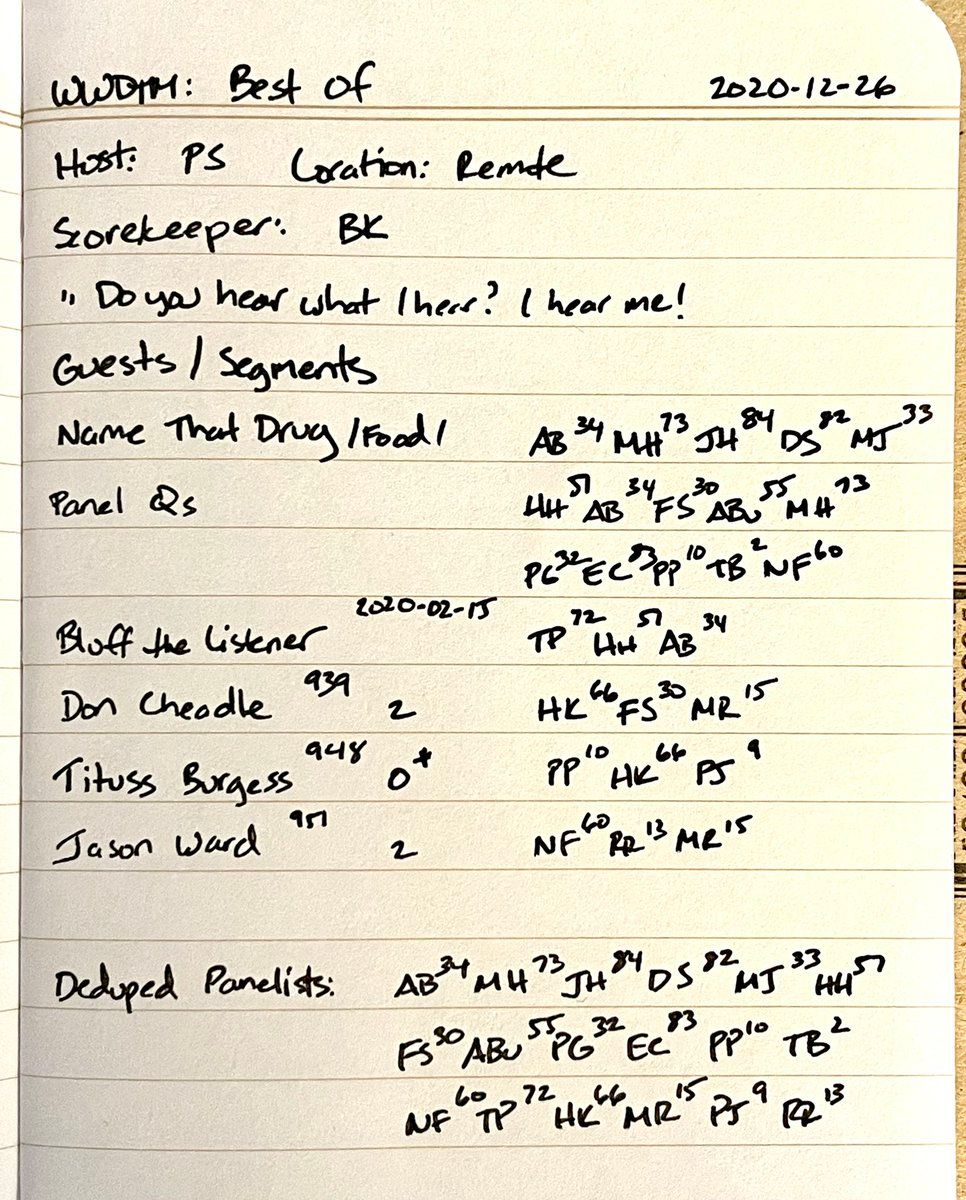 WWDTM: Best Of 2020-12-26
Host: PS Location: Remote
Scorekeeper: BK
" Do you hear what I hear? I hear me!
Guests / Segments
Name That Drug /Food/ AB34 MH73 JH84 DS82 MJ33
Panel Qs HH57 AB34 FS30 ABu55 MH73
PG32 EC83 PP10 TB2 NF60
Bluff the Listener 2020-02-15 TP72 HH57 AB34
Don Cheadle 939 2 HK66 FS30 MR15
Tituss Burgess 948 0* PP10 HK66 PJ9
Jason Ward 951 2 NF60 RR13 MR15
Deduped Panelists: AB34 MH73 JH84 DS82 MJ33 HH57
FS30 ABu55 PG32 EC83 PP10 TB2
NF60 TP72 HK66 MR15 PJ9 RR13